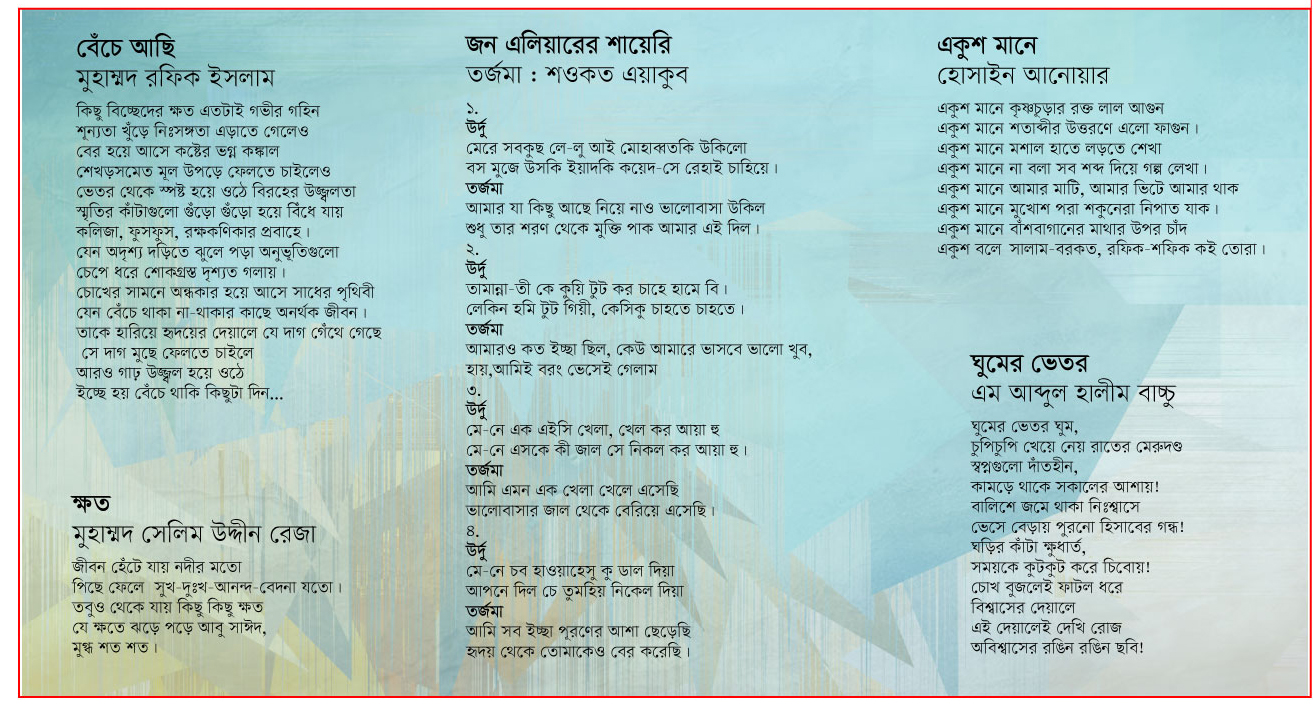 বেঁচে আছি
মুহাম্মদ রফিক ইসলাম
কিছু বিচ্ছেদের ক্ষত এতটাই গভীর গহিন
শূন্যতা খুঁড়ে নিঃসঙ্গতা এড়াতে গেলেও
বের হয়ে আসে কষ্টের ভগ্ন কঙ্কাল
শেখড়সমেত মূল উপড়ে ফেলতে চাইলেও
ভেতর থেকে স্পষ্ট হয়ে ওঠে বিরহের উজ্জ্বলতা
স্মৃতির কাঁটাগুলো গুঁড়ো গুঁড়ো হয়ে বিঁধে যায়
কলিজা, ফুসফুস, রক্ষকণিকার প্রবাহে।
যেন অদৃশ্য দড়িতে ঝুলে পড়া অনুভূতিগুলো
চেপে ধরে শোকগ্রস্ত দৃশ্যত গলায়।
চোখের সামনে অন্ধকার হয়ে আসে সাধের পৃথিবী
যেন বেঁচে থাকা না-থাকার কাছে অনর্থক জীবন।
তাকে হারিয়ে হৃদয়ের দেয়ালে যে দাগ গেঁথে গেছে
সে দাগ মুছে ফেলতে চাইলে
আরও গাঢ় উজ্জ্বল হয়ে ওঠে
ইচ্ছে হয় বেঁচে থাকি কিছুটা দিন...
ক্ষত
মুহাম্মদ সেলিম উদ্দীন রেজা
জীবন হেঁটে যায় নদীর মতো
পিছে ফেলে সুখ-দুঃখ-আনন্দ-বেদনা যতো।
তবুও থেকে যায় কিছু কিছু ক্ষত
যে ক্ষতে ঝড়ে পড়ে আবু সাঈদ,
মুগ্ধ শত শত।
জন এলিয়ারের শায়েরি
তর্জমা : শওকত এয়াকুব
১.
উর্দু
মেরে সবকুছ লে-লু আই মোহাব্বতকি উকিলো
বস মুজে উসকি ইয়াদকি কয়েদ-সে রেহাই চাহিয়ে।
তর্জমা
আমার যা কিছু আছে নিয়ে নাও ভালোবাসা উকিল
শুধু তার শরণ থেকে মুক্তি পাক আমার এই দিল।
২.
উর্দু
তামান্না-তী কে কুয়ি টুট কর চাহে হামে বি।
লেকিন হমি টুট গিয়ী, কেসিকু চাহতে চাহতে।
তর্জমা
আমারও কত ইচ্ছা ছিল, কেউ আমারে ভাসবে ভালো খুব,
হায়,আমিই বরং ভেসেই গেলাম
৩.
উর্দু
মে-নে এক এইসি খেলা, খেল কর আয়া হু
মে-নে এসকে কী জাল সে নিকল কর আয়া হু।
তর্জমা
আমি এমন এক খেলা খেলে এসেছি
ভালোবাসার জাল থেকে বেরিয়ে এসেছি।
৪.
উর্দু
মে-নে চব হাওয়াহেসু কু ডাল দিয়া
আপনে দিল চে তুমহিয় নিকেল দিয়া
তর্জমা
আমি সব ইচ্ছা পূরণের আশা ছেড়েছি
হৃদয় থেকে তোমাকেও বের করেছি।
একুশ মানে
হোসাইন আনোয়ার
একুশ মানে কৃষ্ণচূড়ার রক্ত লাল আগুন
একুশ মানে শতাব্দীর উত্তরণে এলো ফাগুন।
একুশ মানে মশাল হাতে লড়তে শেখা
একুশ মানে না বলা সব শব্দ দিয়ে গল্প লেখা।
একুশ মানে আমার মাটি, আমার ভিটে আমার থাক
একুশ মানে মুখোশ পরা শকুনেরা নিপাত যাক।
একুশ মানে বাঁশবাগানের মাথার উপর চাঁদ
একুশ বলে সালাম-বরকত, রফিক-শফিক কই তোরা।
ঘুমের ভেতর
এম আব্দুল হালীম বাচ্চু
ঘুমের ভেতর ঘুম,
চুপিচুপি খেয়ে নেয় রাতের মেরুদণ্ড
স্বপ্নগুলো দাঁতহীন,
কামড়ে থাকে সকালের আশায়!
বালিশে জমে থাকা নিঃশ্বাসে
ভেসে বেড়ায় পুরনো হিসাবের গন্ধ!
ঘড়ির কাঁটা ক্ষুধার্ত,
সময়কে কুটকুট করে চিবোয়!
চোখ বুজলেই ফাটল ধরে
বিশ্বাসের দেয়ালে
এই দেয়ালেই দেখি রোজ
অবিশ্বাসের রঙিন রঙিন ছবি!